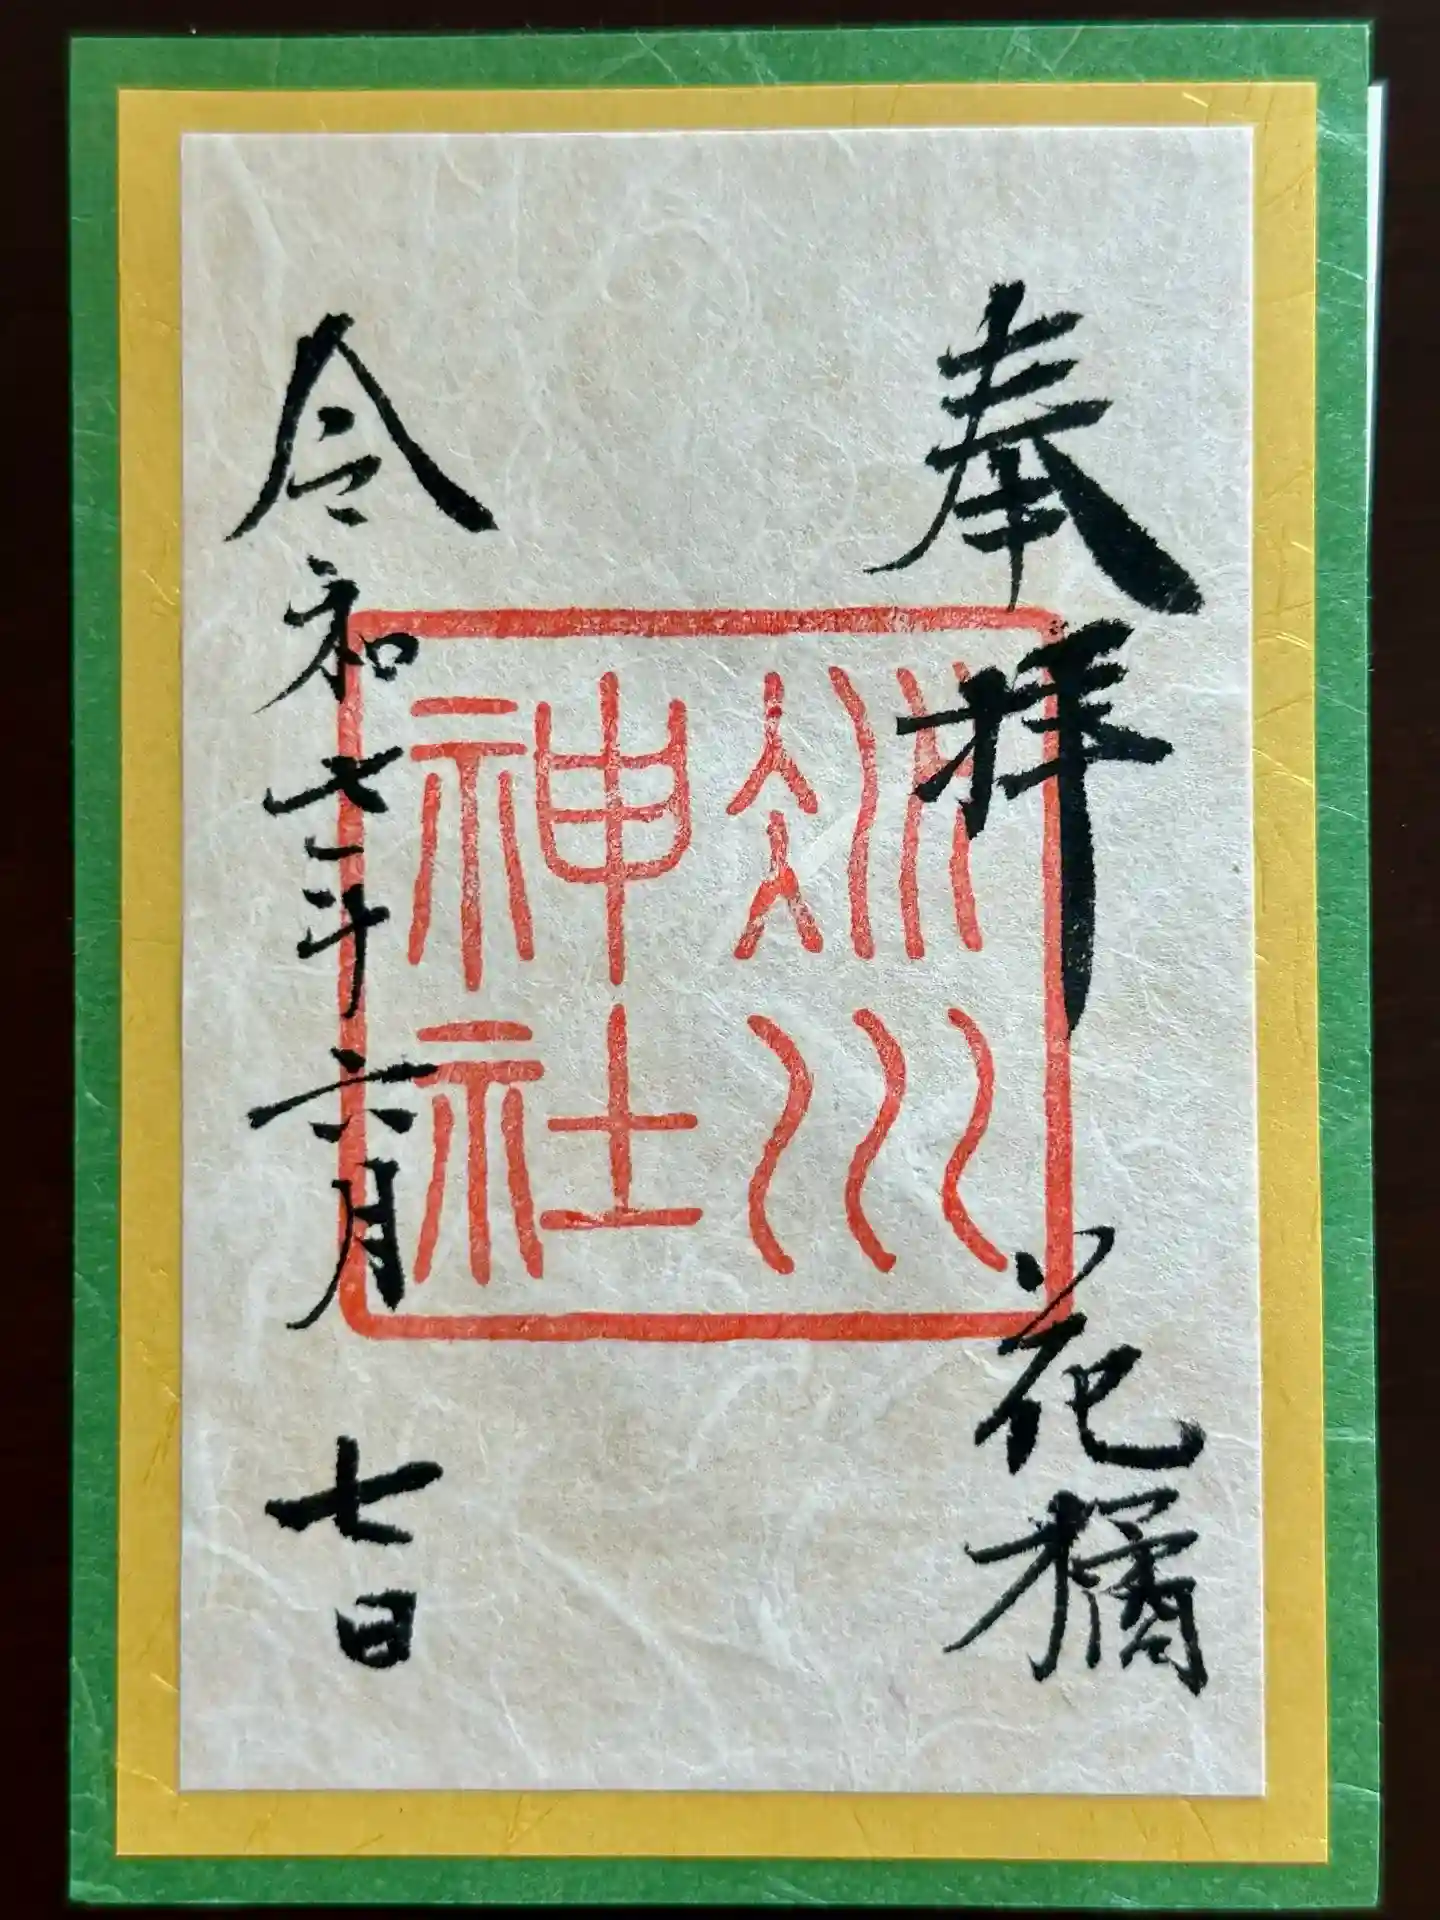 奉拝 花橘
氷川
神社
令和七年六月七日